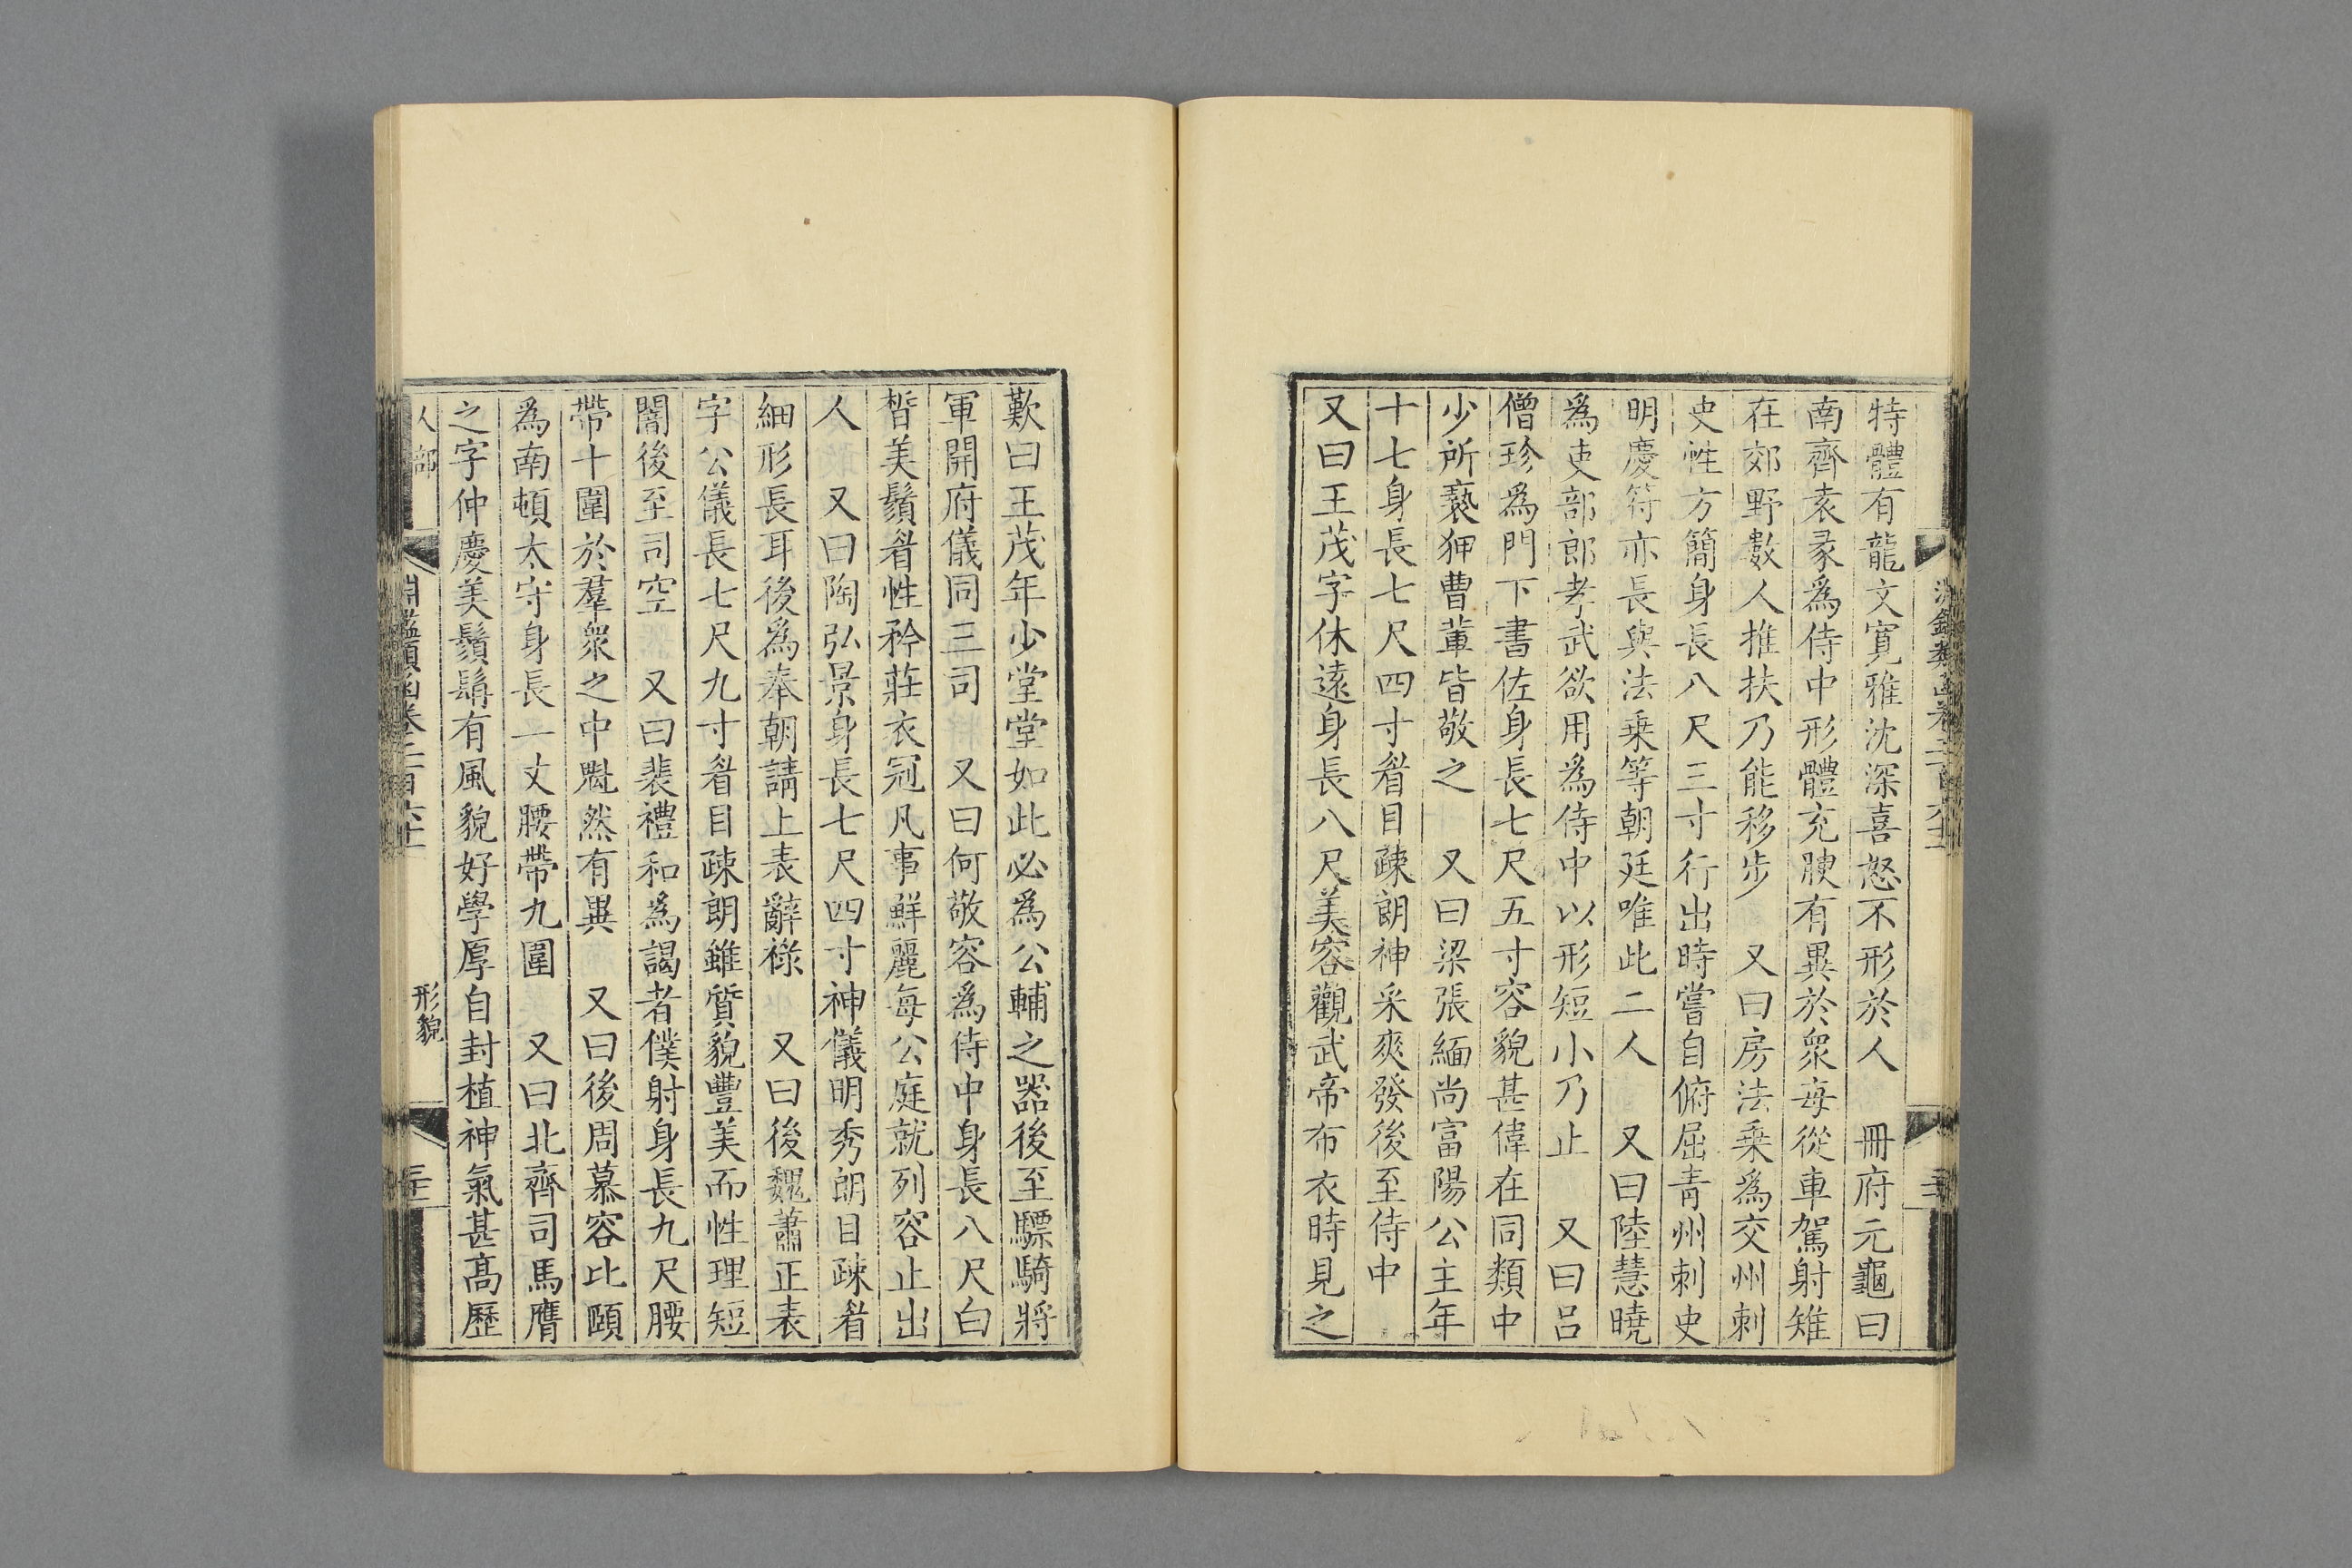 特體有龍文寛雅沈深喜怒不形於人　冊府元龜曰
南齊袁彖爲侍中形體充腴有異於衆毎從車駕射雉
在郊野數人推扶乃能移步　又曰房法乗爲交州刺
史性方簡身長八尺三寸行出時嘗自俯屈青州刺史
明慶符亦長與法乗等朝廷唯此二人　又曰陸慧曉
爲吏部郎孝武欲用爲侍中以形短小乃止　又曰吕
僧珍爲門下書佐身長七尺五寸容貌甚偉在同類中
少所褻狎曹輩皆敬之　又曰梁張緬尚富陽公主年
十七身長七尺四寸眉目疎朗神采爽發後至侍中
又曰王茂字休遠身長八尺美容觀武帝布衣時見之
歎曰王茂年少堂堂如此必爲公輔之器後至驃騎將
軍開府儀同三司　又曰何敬容爲侍中身長八尺白
皙美鬚眉性矜莊衣冠凡事鮮麗毎公庭就列容止出
人　又曰陶弘景身長七尺四寸神儀明秀朗目疎眉
細形長耳後爲奉朝請上表辭祿　又曰後魏蕭正表
字公儀長七尺九寸眉目疎朗雖質貌豐美而性理短
闇後至司空　又曰裴禮和爲謁者僕射身長九尺腰
帶十圍於羣衆之中魁然有異　又曰後周慕容比頤
爲南頓太守身長一丈腰帶九圍　又曰北齊司馬膺
之字仲慶美鬚髯有風貌好學厚自封植神氣甚髙歷
人部
淵鑑類函卷二百六十
形貌